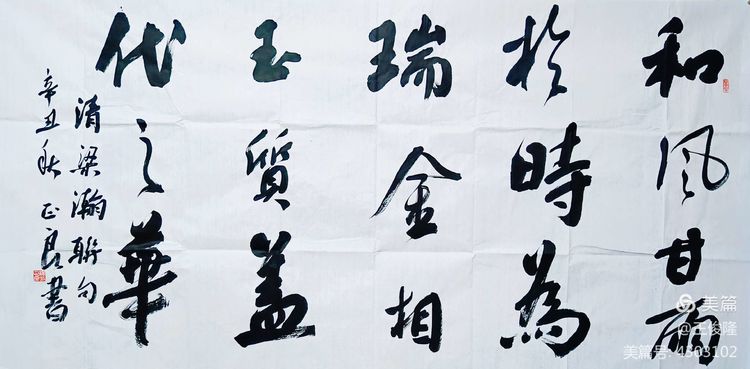 和风甘雨
於時為
瑞金相
玉質盖
代之華
清梁瀚聨句
辛丑秋正良書
美篇
@王俊隆
美篇号:4303102